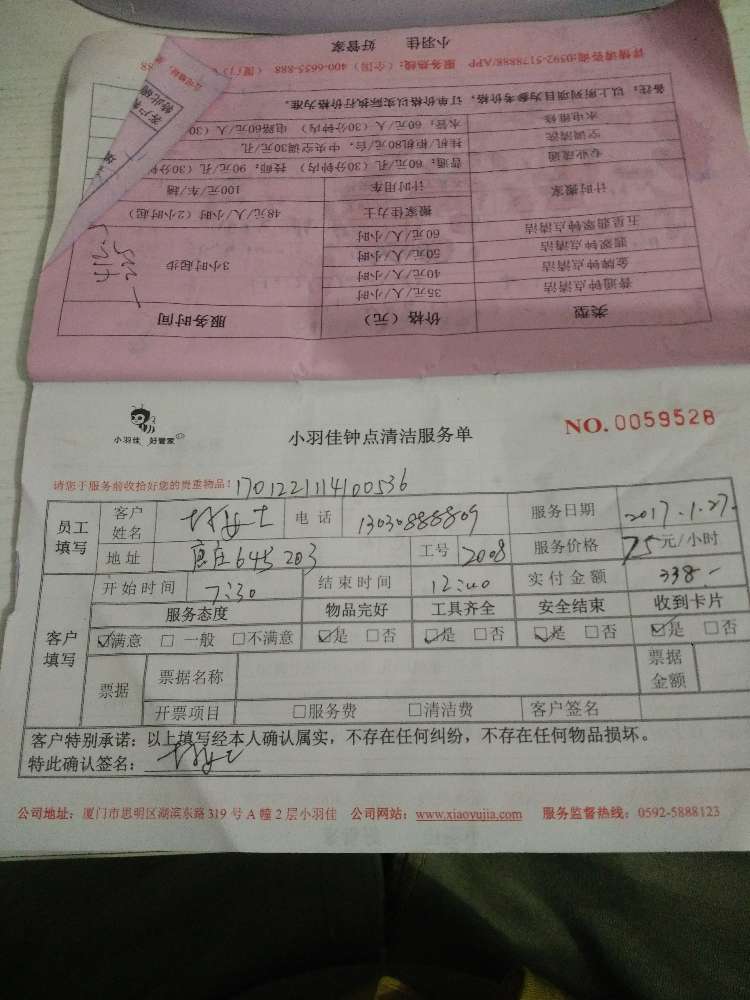 小羽佳 好管家
详情请咨询:0592-5178888/APP 服务热线:(全国)400-6655-888
备注:以上所列项目为参考价格,订单价格以实际执行价格为准。
类型 价格(元) 服务时间
普通钟点清洁 35元/人/小时 3小时起步
金牌钟点清洁 40元/人/小时
翡翠钟点清洁 50元/人/小时
五星翡翠钟点清洁 60元/人/小时
计时搬家 搬家佳力士 48元/人/小时(2小时起)
计时用车 100元/车/辆
专业疏通 普通:60元/孔(30分钟内) 技师:90元/孔(30分钟
空调清洗 挂机柜机80元/台,中央空调30元/孔
水电维修 水管:60元/人(30分钟内) 电路60元/人(30
小羽佳 好管家
小羽佳钟点清洁服务单
NO.0059528
请您于服务前收拾好您的贵重物品! 170122114100536
员工填写 客户姓名 电话 13030888809 服务日期 2017.1.27.
地址 645 203 工号 2008 服务价格 75元/小时
客户填写 开始时间 7:30 结束时间 12:00 实付金额 338.-
服务态度 物品完好 工具齐全 安全结束 收到卡片
☑满意 □一般 □不满意 ☑是 □否 ☑是 □否 ☑是 □否 ☑是 □否
票据 票据名称 票据金额
开票项目 □服务费 □清洁费 客户签名
客户特别承诺:以上填写经本人确认属实,不存在任何纠纷,不存在任何物品损坏。
特此确认签名:
公司地址:厦门市思明区湖滨东路319号A幢2层小羽佳 公司网站:www.xiaoyujia.com 服务监督热线:0592-5888123